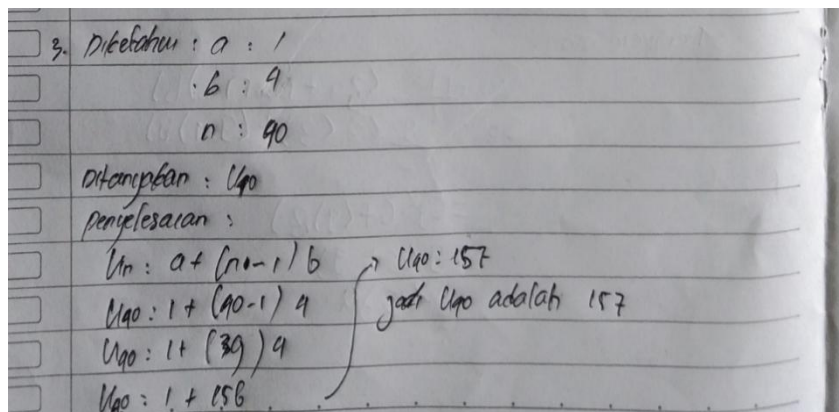 3. Diketahui : a : 1
b : 4
n : 40
Ditanyakan : U40
Penyelesaian :
Un : a + (n-1) b
U40 : 1 + (40-1) 4
U40 : 1 + (39) 4
U40 : 1 + 156
U40 : 157
jadi U40 adalah 157